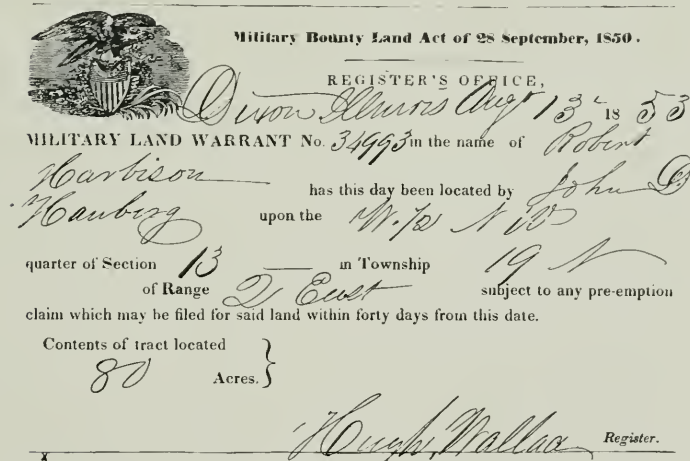 Military Bounty Land Act of 28 September, 1850.
REGISTER'S OFFICE,
Dixon Illinois Augt 13th 1853
MILITARY LAND WARRANT No. 34993 in the name of Robert
Harbison has this day been located by John D
Hauberg upon the W. 1/2 N W
quarter of Section 13 in Township 19 N
of Range 2 East subject to any pre-emption
claim which may be filed for said land within forty days from this date.
Contents of tract located
80 Acres.
Hugh Wallace Register.